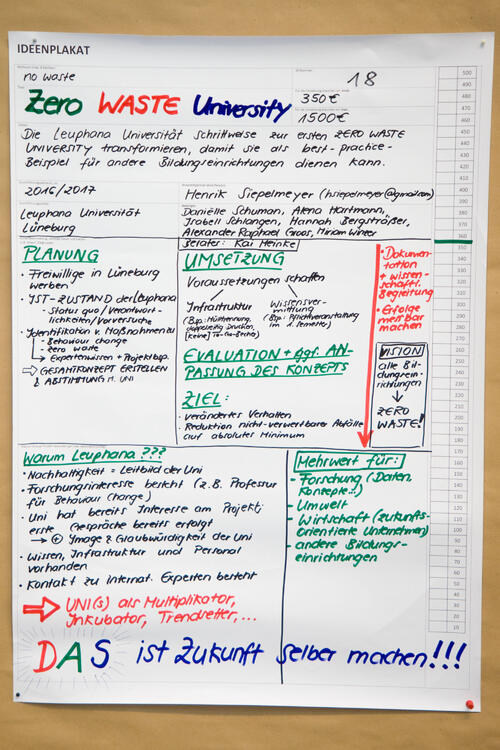 IDEENPLAKAT
no waste
18
Zero WASTE University
350€
1500€
Die Leuphana Universität schrittweise zur ersten ZERO WASTE
UNIVERSITY transformieren, damit sie als best-practice-
Beispiel für andere Bildungseinrichtungen dienen kann.
2016/2017
Henrik Siepelmeyer (hsiepelmeyer@gmail.com)
Leuphana Universität
Lüneburg
Danielle Schuman, Alena Hartmann,
Isabell Schlangen, Hannah Bergsträßer,
Alexander Raphael Groos, Miriam Winter
Berater: Kai Heinke
PLANUNG
· Freiwillige in Lüneburg
werben
· IST-ZUSTAND der Leuphana
- Status quo/Verantwort-
lichkeiten/Vorversuche
· Identifikation v. Maßnahmen zu
- Behaviour change
- zero waste
→ Expertenwissen + Projektbsp.
⇨ GESAMTKONZEPT ERSTELLEN
& ABSTIMMUNG m. UNI
UMSETZUNG
Voraussetzungen schaffen
Infrastruktur
(Bsp: Mülltrennung,
doppelseitig Drucken,
keine To-Go-Becher)
Wissensver-
mittlung
(Bsp: Pflichtveranstaltung
im 1. Semester)
EVALUATION + ggf. AN-
PASSUNG DES KONZEPTS
ZIEL:
· verändertes Verhalten
· Reduktion nicht-verwertbarer Abfälle
auf absolutes Minimum
· Dokumen-
tation
+ wissen-
schaftl.
Begleitung
· Erfolge
messbar
machen
VISION
alle Bil-
dungsein-
richtungen
↓
ZERO
WASTE!
Warum Leuphana ???
· Nachhaltigkeit = Leitbild der Uni
· Forschungsinteresse besteht (z.B. Professur
für Behaviour Change)
· Uni hat bereits Interesse am Projekt;
erste Gespräche bereits erfolgt
→ ⊕ Image & Glaubwürdigkeit der Uni
· Wissen, Infrastruktur und Personal
vorhanden
· Kontakt zu internat. Experten besteht
⇨ UNI(s) als Multiplikator,
Inkubator, Trendsetter,...
Mehrwert für:
- Forschung (Daten,
Konzepte...)
- Umwelt
- Wirtschaft (zukunfts-
orientierte Unternehmen)
- andere Bildungs-
einrichtungen
DAS ist Zukunft selber machen!!!
500
490
480
470
460
450
440
430
420
410
400
390
380
370
360
350
340
330
320
310
300
290
280
270
260
250
240
230
220
210
200
190
180
170
160
150
140
130
120
110
100
90
80
70
60
50
40
30
20
10